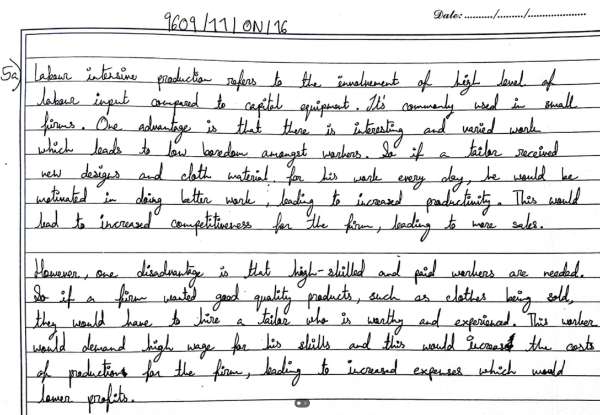 9609/11/ON/16
Date: ........../........../....................
5a)
Labour intensive production refers to the involvement of high level of
labour input compared to capital equipment. It's commonly used in small
firms. One advantage is that there is interesting and varied work
which leads to low boredom amongst workers. So if a tailor received
new designs and cloth material for his work every day, he would be
motivated in doing better work, leading to increased productivity. This would
lead to increased competitiveness for the firm, leading to more sales.
However, one disadvantage is that high-skilled and paid workers are needed.
So if a firm wanted good quality products, such as clothes being sold,
they would have to hire a tailor who is worthy and experienced. This worker
would demand high wage for his skills and this would increase the costs
of production for the firm, leading to increased expenses which would
lower profits.